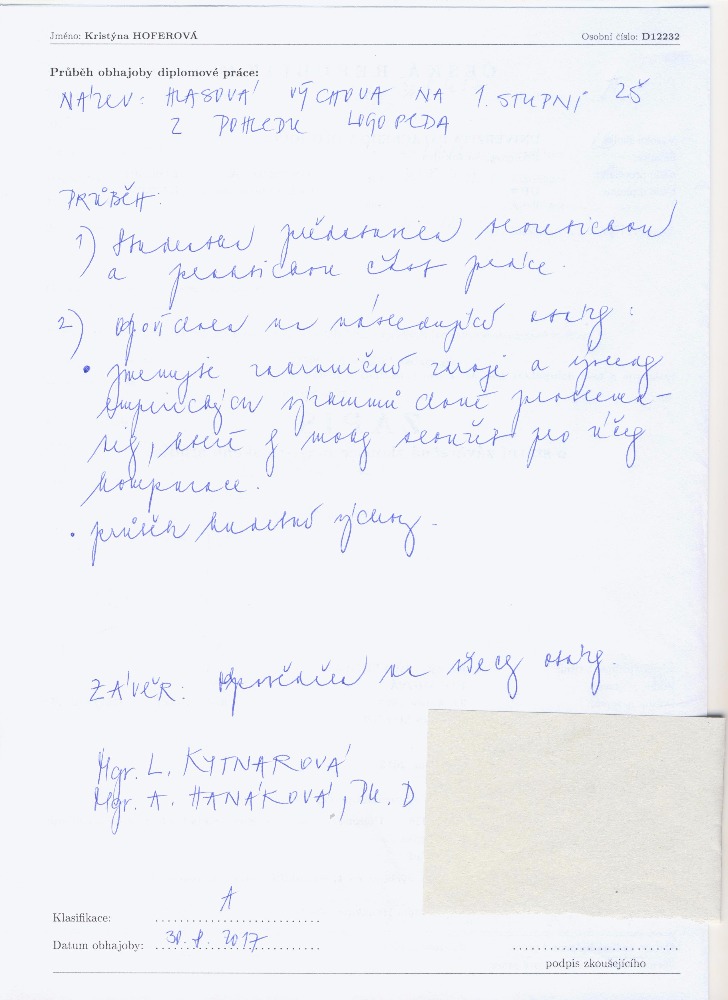 Jméno: Kristýna HOFEROVÁ Osobní číslo: D12232
Průběh obhajoby diplomové práce:
NÁZEV: HLASOVÁ VÝCHOVA NA 1. STUPNI ZŠ
Z POHLEDU LOGOPEDA
PRŮBĚH:
1) Studentka představila teoretickou
a praktickou část práce.
2) na následující otázky:
• jmenujte zahraniční zdroje a výsledky
empirických výzkumů dané problema-
tiky, které by mohly sloužit pro účely
komparace.
• průběh hudební výchovy.
ZÁVĚR: Odpověděla na všechny otázky.
Mgr. L. KYTNAROVÁ
Mgr. A. HANÁKOVÁ, Ph. D
Klasifikace: A
Datum obhajoby: 30. 8. 2017
podpis zkoušejícího